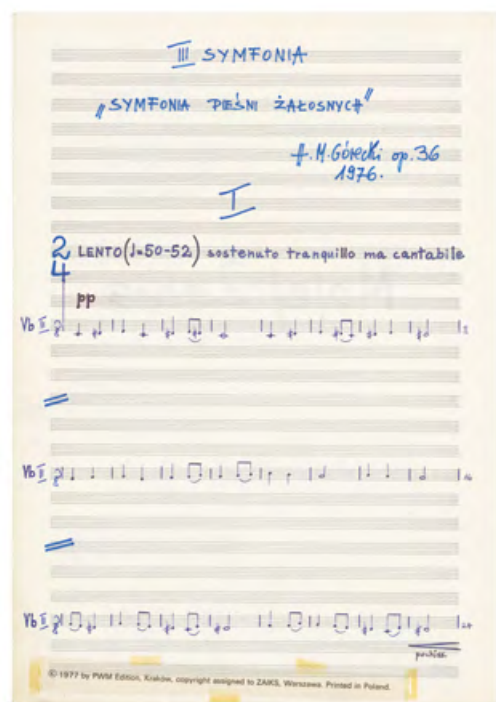 III SYMFONIA
„SYMFONIA PIEŚNI ŻAŁOSNYCH”
H. M. Górecki op. 36
1976.
I
2/4 LENTO (♩=50-52) sostenuto tranquillo ma cantabile
pp
Vb II
Vb II
Vb II
© 1977 by PWM Edition, Kraków, copyright assigned to ZAIKS, Warszawa. Printed in Poland.